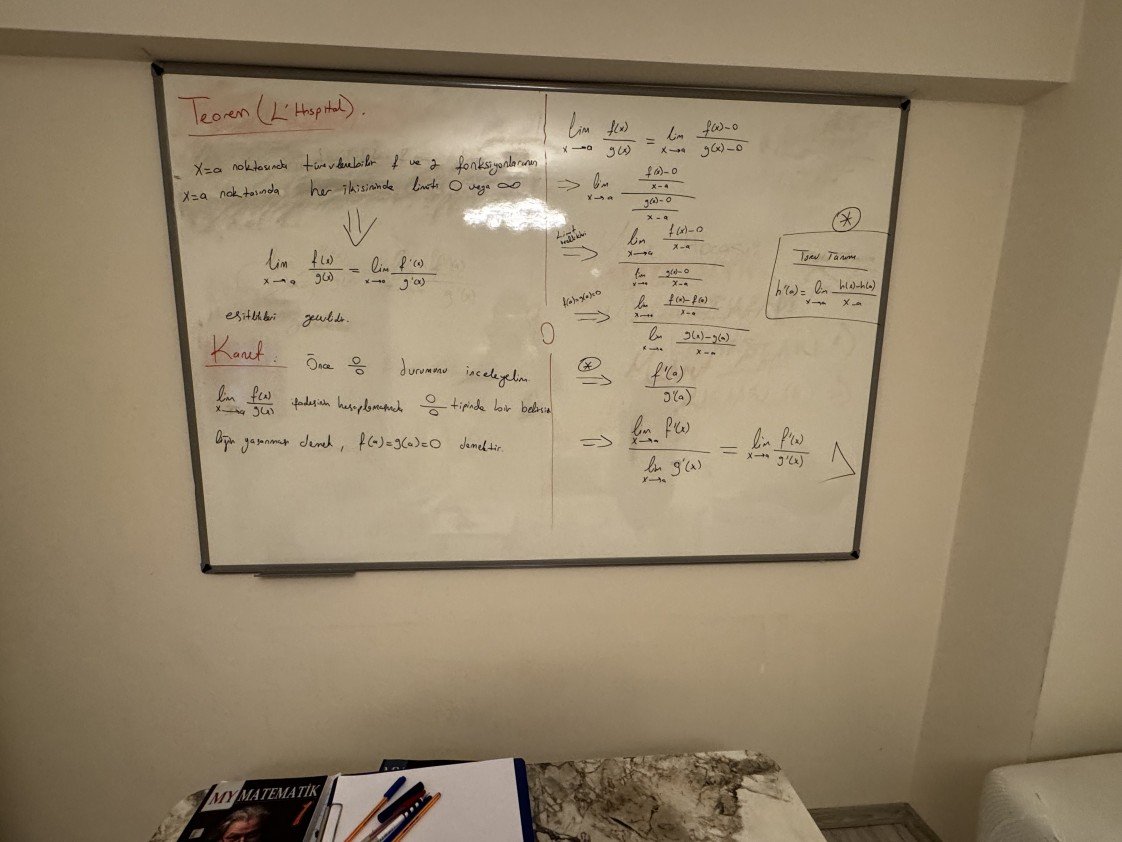 Teorem (L'Hospital).
x=a noktasında türevlenebilir f ve g fonksiyonlarının
x=a noktasında her ikisininde limiti 0 veya ∞
⇓
lim x→a f(x)/g(x) = lim x→a f'(x)/g'(x)
eşitlikleri geçerlidir.
Kanıt: Önce 0/0 durumunu inceleyelim.
lim x→a f(x)/g(x) ifadesinin hesaplamasında 0/0 tipinde bir belirsiz
liğin yaşanması demek, f(a)=g(a)=0 demektir.
lim x→a f(x)/g(x) = lim x→a (f(x)-0)/(g(x)-0)
⇒ lim x→a ((f(x)-0)/(x-a))/((g(x)-0)/(x-a))
Limit özellikleri ⇒ (lim x→a (f(x)-0)/(x-a))/(lim x→a (g(x)-0)/(x-a))
f(a)=g(a)=0 ⇒ (lim x→a (f(x)-f(a))/(x-a))/(lim x→a (g(x)-g(a))/(x-a))
* ⇒ f'(a)/g'(a)
⇒ (lim x→a f'(x))/(lim x→a g'(x)) = lim x→a f'(x)/g'(x)
*
Türev Tanımı
h'(a) = lim x→a (h(x)-h(a))/(x-a)
MY MATEMATİK 1